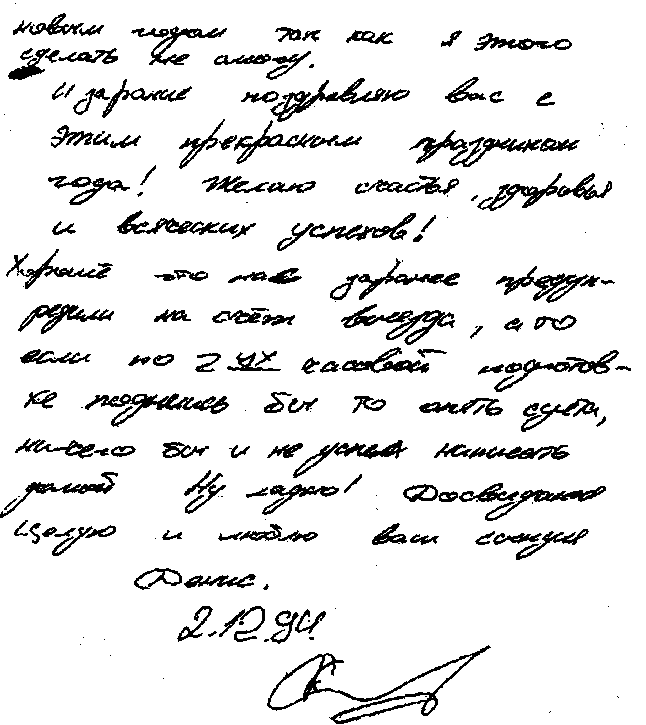 новым годом так как я этого
сделать не смогу.
И зарание поздравляю вас с
этим прекрасным праздником
года! Желаю счастья, здоровья
и всяческих успехов!
Хорошо что нас зарание предуп-
редили на счёт выезда, а то
если по 2ух часовой подготов-
ке поднялись бы то опять суета,
ничего бы и не успел написать
домой Ну ладно! Досвидания
Целую и люблю ваш сынуля
Денис.
2.12.94.